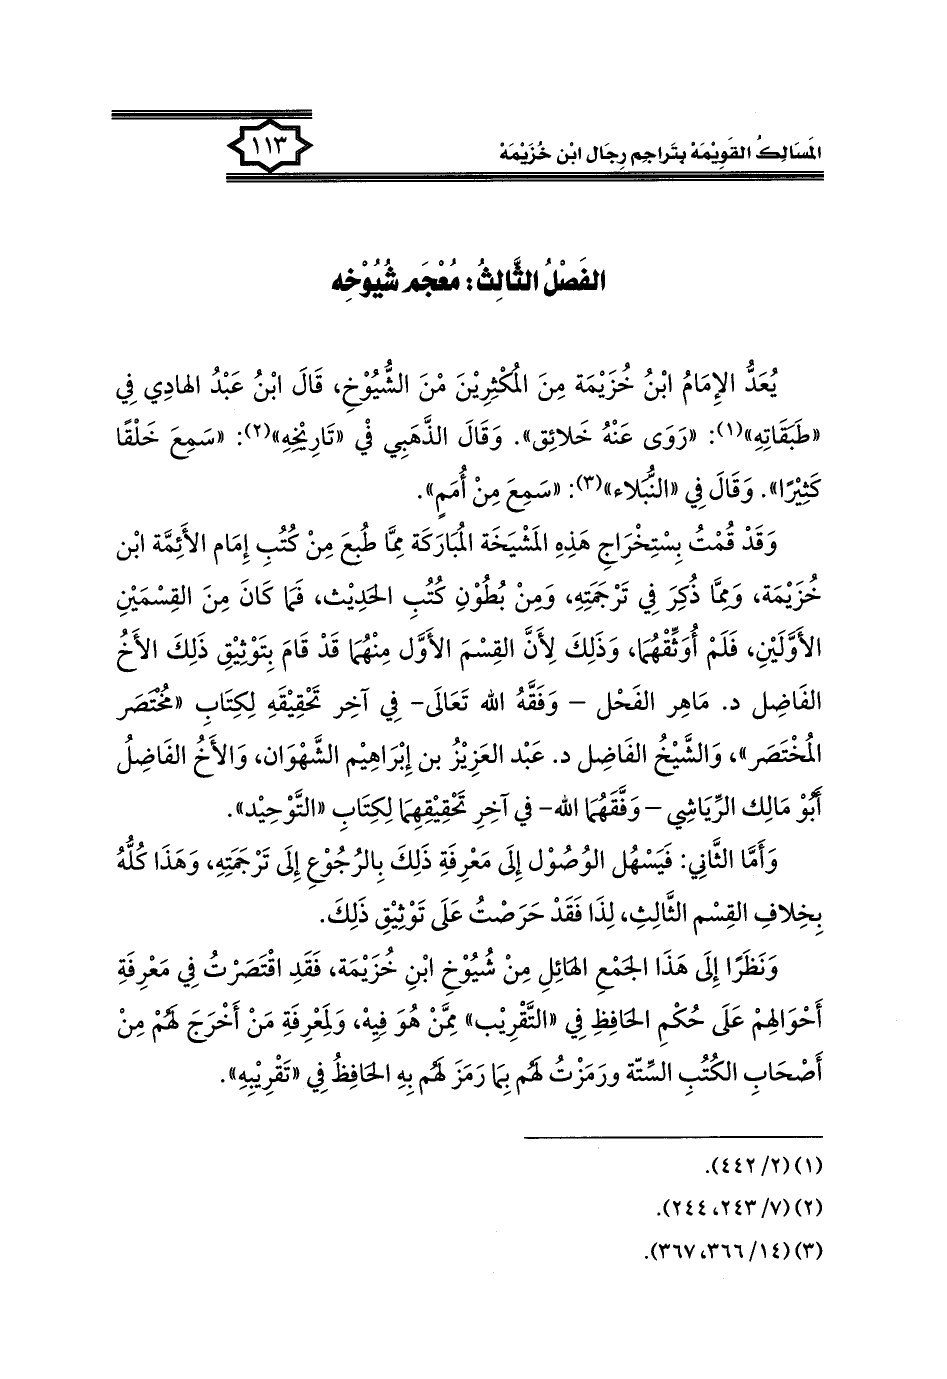 المَسَالِكُ القَوِيْمَة بتَراجِم رِجَال ابْن خُزَيْمَة
١١٣
الفَصْلُ الثَّالِثُ: مُعْجَم شُيُوْخِه
يُعَدُّ الإِمَامُ ابْنُ خُزَيْمَة مِنَ المُكْثِرِيْنَ مْنَ الشُّيُوْخِ، قَالَ ابْنُ عَبْدُ الهَادِي فِي
«طَبَقَاتِهِ»(١): «رَوَى عَنْهُ خَلائِق». وَقَالَ الذَّهَبِي فْي «تَارِيْخِهِ»(٢): «سَمِعَ خَلْقًا
كَثِيْرًا». وَقَالَ فِي «النُّبَلاء»(٣): «سَمِعَ مِنْ أُمَمٍ».
وَقَدْ قُمْتُ بِسْتِخْرَاجِ هَذِهِ المَشْيَخَة المُبَارَكَة مِمَّا طُبِعَ مِنْ كُتُبِ إِمَام الأَئِمَّة ابْن
خُزَيْمَة، وَمِمَّا ذُكِرَ فِي تَرْجَمَتِهِ، وَمِنْ بُطُوْنِ كُتُبِ الحَدِيْث، فَمَا كَانَ مِنَ القِسْمَيْنِ
الأَوَّلَيْنِ، فَلَمْ أُوَثِّقْهُمَا، وَذَلِكَ لِأَنَّ القِسْمَ الأَوَّل مِنْهُمَا قَدْ قَامَ بِتَوْثِيْقِ ذَلِكَ الأَخُ
الفَاضِل د. مَاهِر الفَحْل – وَفَقَّهُ الله تَعَالَى- فِي آخِر تَحْقِيْقَهِ لِكِتَابِ «مُخْتَصَر
المُخْتَصَر»، وَالشَّيْخُ الفَاضِل د. عَبْد العَزِيْزُ بن إِبْرَاهِيْم الشَّهْوَان، وَالأَخُ الفَاضِلُ
أَبُوْ مَالِك الرِّيَاشِي – وَفَّقَهُمَا الله- في آخِرِ تَحْقِيْقِهِمَا لِكِتَابِ «التَّوْحِيْد».
وَأَمَّا الثَّانِي: فَيَسْهُل الوُصُوْل إِلَى مَعْرِفَةِ ذَلِكَ بِالرُجُوْعِ إِلَى تَرْجَمَتِهِ، وَهَذَا كُلُّهُ
بِخِلافِ القِسْم الثَّالِثِ، لِذَا فَقَدْ حَرَصْتُ عَلَى تَوْثِيْقِ ذَلِكَ.
وَنَظَرًا إِلَى هَذَا الجَمْعِ الهَائِلِ مِنْ شُيُوْخِ ابْنِ خُزَيْمَة، فَقَدِ اقْتَصَرْتُ فِي مَعْرِفَةِ
أَحْوَالِهِمْ عَلَى حُكْمِ الحَافِظِ فِي «التَّقْرِيْب» مِمَّنْ هُوَ فِيْهِ، وَلِمَعْرِفَةِ مَنْ أَخْرَجَ لَهُمْ مِنْ
أَصْحَابِ الكُتُبِ السِّتَّة ورَمَزْتُ لَهُم بِمَا رَمَزَ لَهُم بِهِ الحَافِظُ فِي «تَقْرِيْبِهِ».
(١) (٢/ ٤٤٢).
(٢) (٧/ ٢٤٣، ٢٤٤).
(٣) (١٤/ ٣٦٦، ٣٦٧).